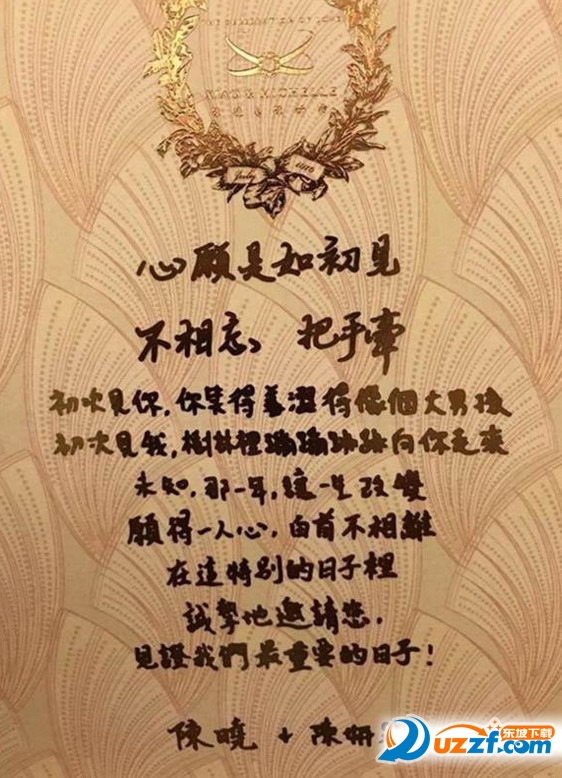 XIAO & MICHELLE
July 2016
心願是如初見
不相忘, 把手牽
初次見你, 你笑得羞澀得像個大男孩
初次見我, 樹林裡蹦蹦跳跳向你走來
未知, 那一年, 讓一生改變
願得一人心, 白首不相離
在這特別的日子裡
誠摯地邀請您,
見證我們最重要的日子!
陳曉 + 陳妍
东坡下载
uzzf.com